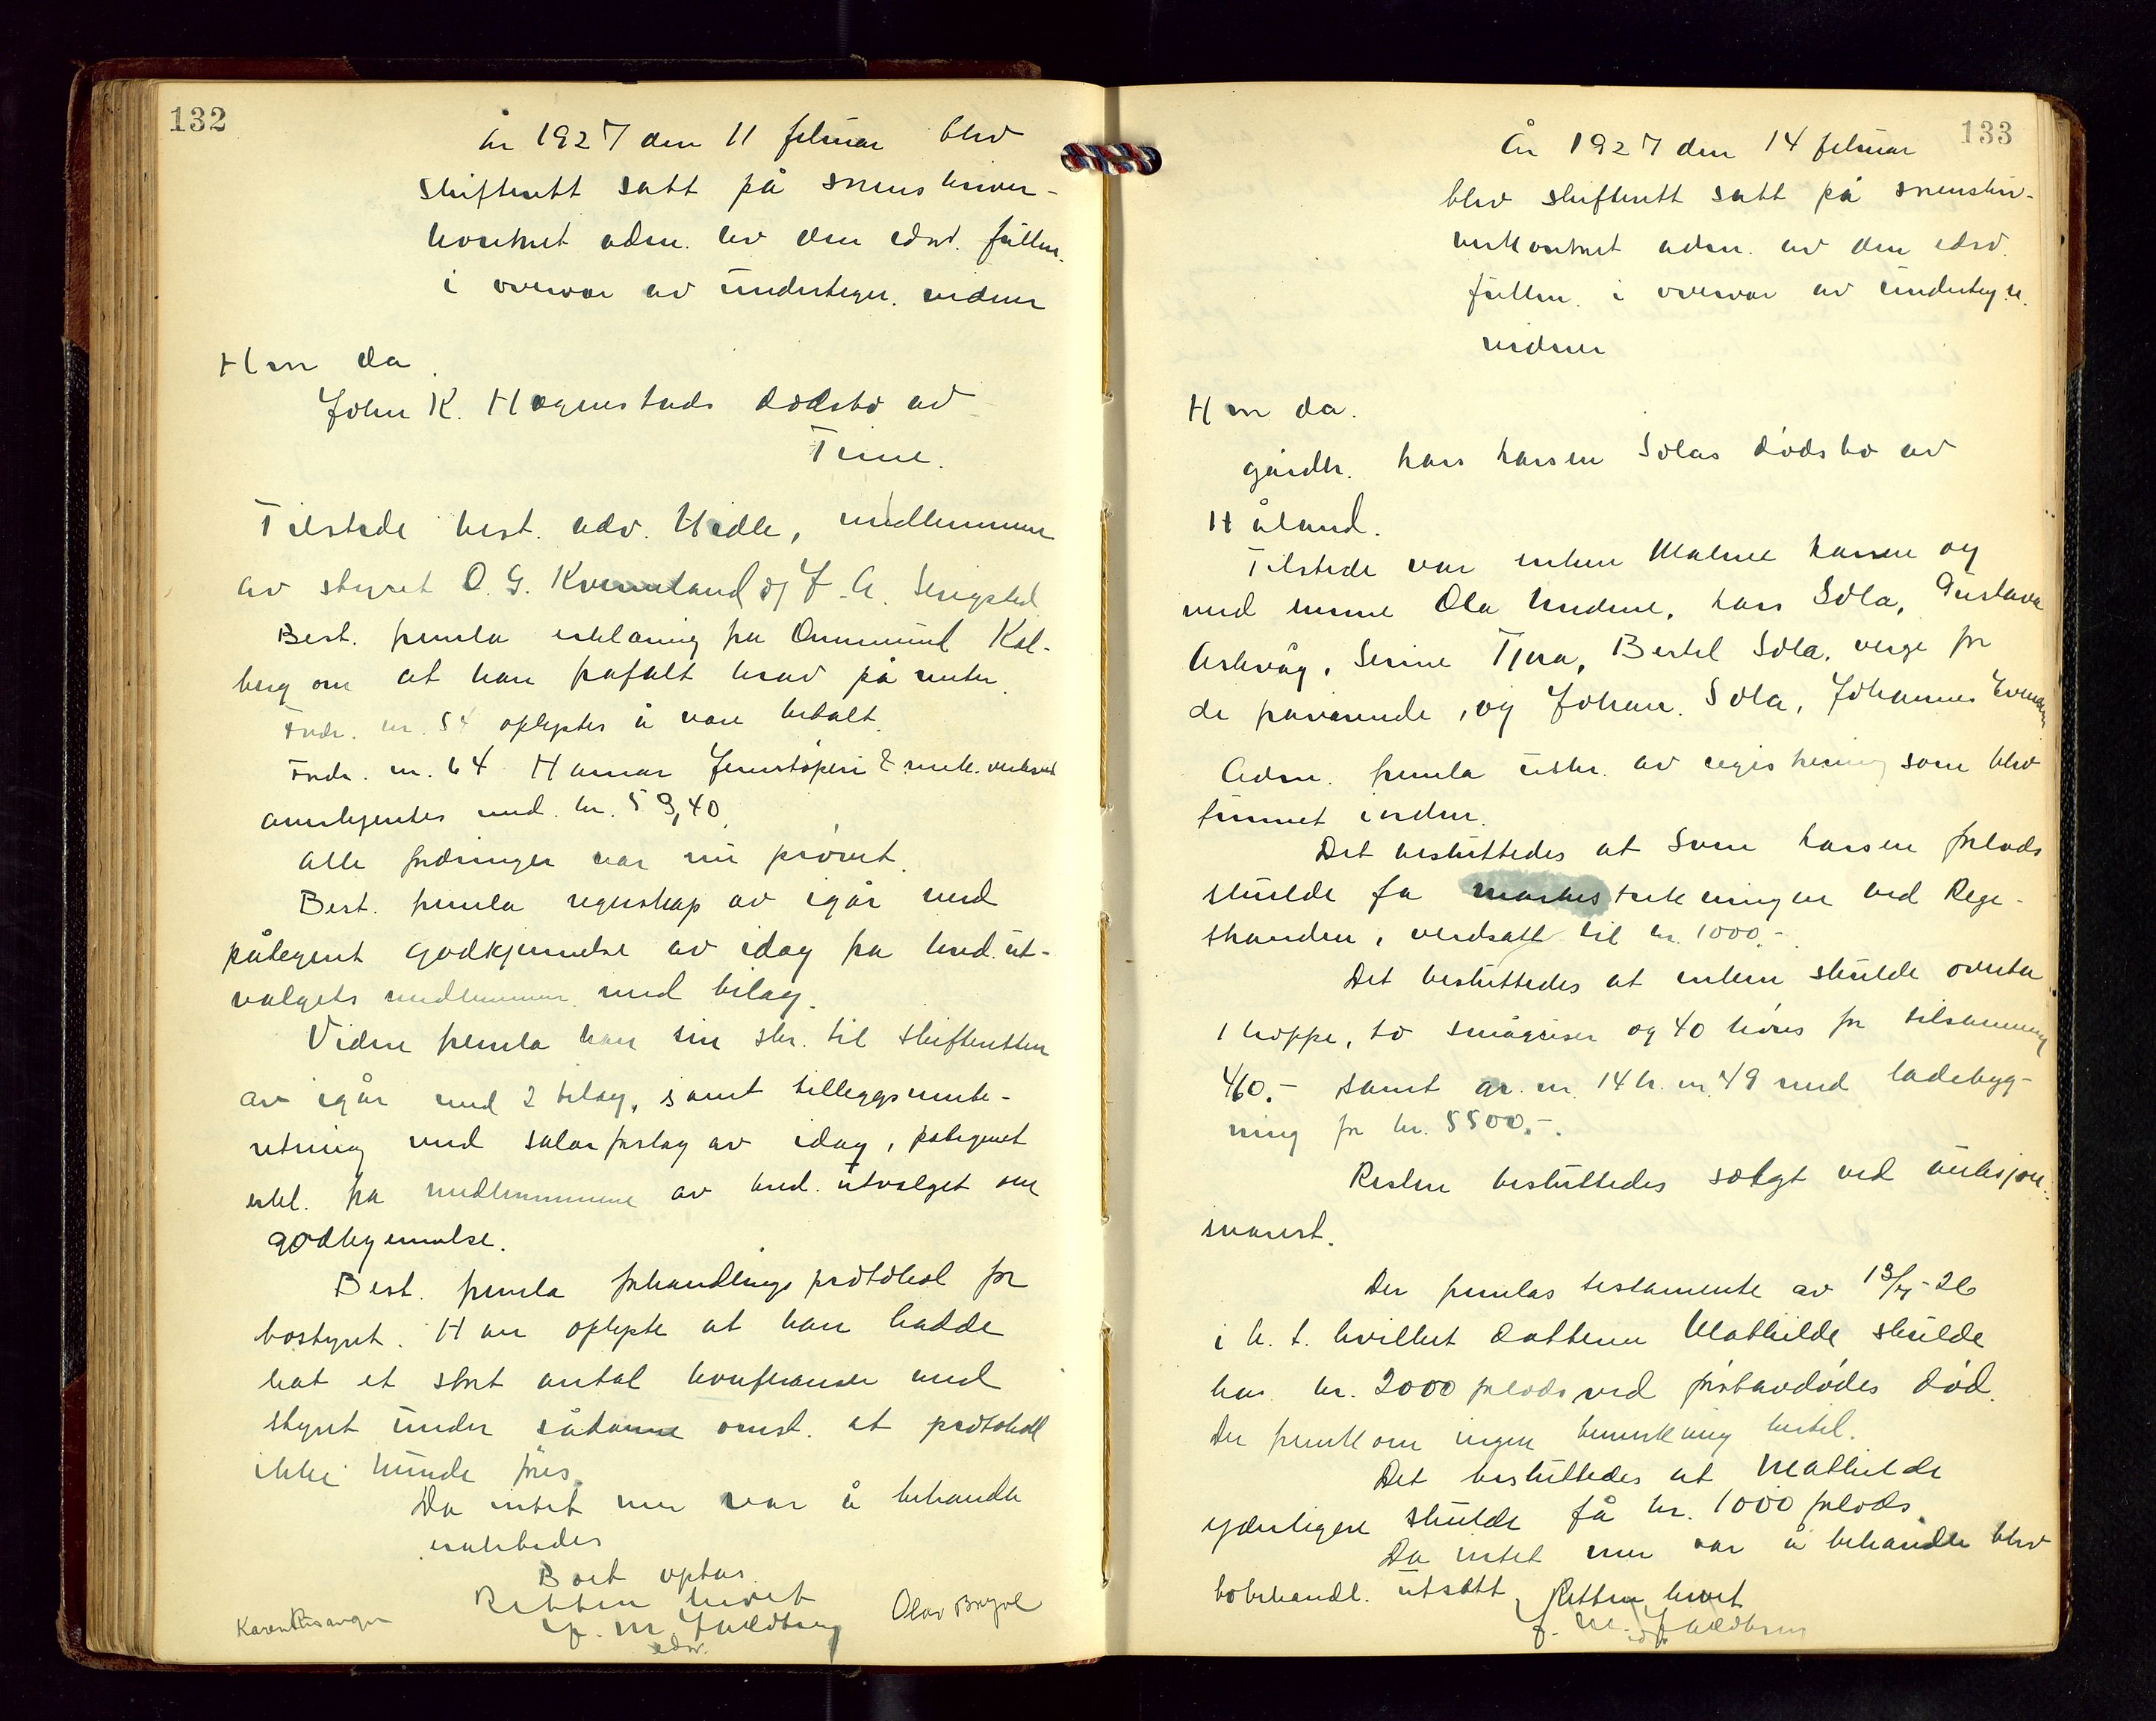 132
År 1927 den 11 februar blev
skifterett satt på sorenskriver-
kontoret adm. av den edsv. fullm.
i overvær av undertegn. vidner
Hvor da.
John K. Hognestads dødsbo av
Time.
Tilstede best. adv. Hidle, medlemmene
av styret O. G. Kvernland og J. A. Serigstad
Best. fremla erklæring fra Ommund Kal-
berg om at han frafalt krav på renter.
Fordr. nr. 54 oplystes å være betalt.
Fordr. nr. 64 Hamar Jernstøperi & mek. verksted
anerkjentes med kr. 59,40.
Alle fordringer var nu prøvet.
Best. fremla regnskap av igår med
påtegnet godkjennelse av idag fra kred. ut-
valgets medlemmer med bilag.
Videre fremla han sin skr. til skifteretten
av igår med 2 bilag, samt tilleggsinnbe-
retning med salærforslag av idag, påtegnet
erkl. fra medlemmene av kred. utvalget om
godkjennelse.
Best. fremla forhandlingsprotokol for
bostyret. Han oplyste at han hadde
hat et stort antal konferanser med
styret under sådanne omst. at protokoll
ikke kunde føres.
Da intet mer var å behandle
Boet optas
Retten hevet
J. M. Fuldbrug
edsv.
Olav Bryne
133
År 1927 den 14 februar
blev skifterett satt på sorenskri-
verkontoret adm. av den edsv.
fullm. i overvær av undertegn.
vidner
Hvor da.
gårdbr. Lars Larsen Solas dødsbo av
Håland.
Tilstede var enken Malene Larsen og
med henne Ola , Lars Sola, Gustava
Askvåg, Serine Tjora, Bertel Sola, verge for
de fraværende, og Johan Sola, Johannes
Adm. fremla utskr. av registrering som blev
funnet iorden.
Det besluttedes at Sven Larsen forlods
skulde få trekningen ved Rege-
stranden, verdsatt til kr. 1000.-
Det besluttedes at enken skulde overta
1 hoppe, to smågriser og 40 høns for tilsammen
460.- samt gr. nr. 14 br. nr. 49 med ladebyg-
ning for kr. 5500.-.
Resten besluttedes solgt ved auksjon
snarest.
Der fremlas testamente av
i h. t. hvilket datteren Mathilde skulde
ha kr. 2000 forlods ved førstavdødes død.
Der fremkom ingen bemerkning hertil.
Det besluttedes at Mathilde
yderligere skulde få kr. 1000 forlods.
Da intet mer var å behandle blev
bobehandl. utsatt, Retten hevet
J. M. Fuldbrug